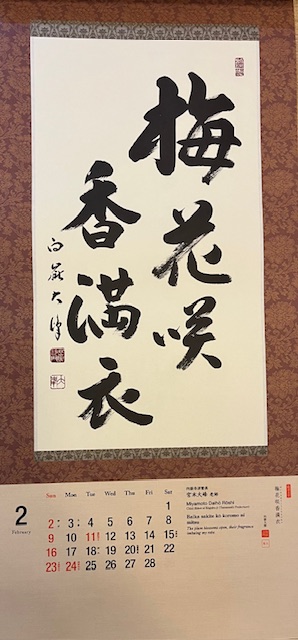 梅花咲
香満衣
2
February
Sun Mon Tue Wed Thu Fri Sat
1
2 3 4 5 6 7 8
9 10 11 12 13 14 15
16 17 18 19 20 21 22
23 24 25 26 27 28
宮本大峰 老師
Miyamoto Daihō Rōshi
Baika sakite kō koromo ni
mitsu
The plum blossoms open, their fragrance
imbuing my robe
梅花咲香満衣